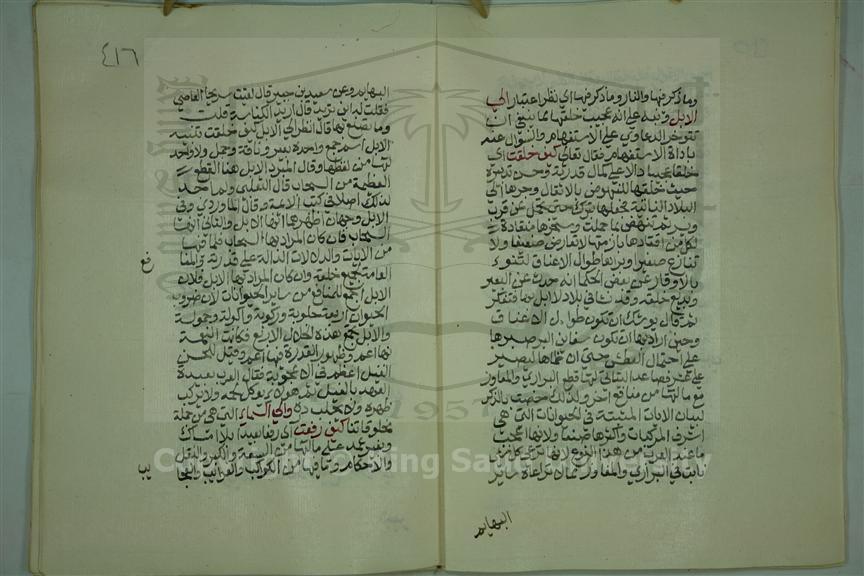 وما ذكر فيها والنار وما ذكر فيها اي نظر اعتبار الى
الابل ونبه على انه عجيب خلقها مما ينبغي ان
تتوفر الدعاوى على الاستفهام والسؤال عنه
باداة الاستفهام فقال تعالى كيف خلقت اي
خلقا عجيبا دالا على كمال قدرته وحسن تدبيره
حيث خلقها للنهوض بالاثقال وجرها الى
البلاد النائية فجعلها تبرك حتى تحمل عن قرب
ويسر ثم تنهض بما حملت وسخرها منقادة
لكل من اقتادها بازمتها لا تعارض ضعيفا ولا
تنازع صغيرا وبراها طوال الاعناق لتنوء
بالاوقار عن بعض الحكماء انه حدث عن البعير
وبديع خلقه وقد نشا في بلاد لا ابل بها فتفكر
ثم قال يوشك ان تكون طوال الاعناق
وحين اراد بها ان تكون سفائن البر صبرها
على احتمال العطش حتى ان ظماها ليصير
على عشر فصاعدا ليتاتى لها قطع البراري والمفاوز
مع مالها من منافع اخر ولذلك خصت بالذكر
لبيان الايات المنبثة في الحيوانات التي هي
اشرف المركبات واكثرها صنعا ولانها اعجب
ما عند العرب من هذا النوع لانها ترعى كل شي
نابت في البراري والمفاوز مما لا يرعاه سائر
البهايم
٤١٦
البهايم وعن سعيد بن جبير قال لقيت شريحا القاضي
فقلت له اين تريد قال اريد الكناسة قلت
وما تصنع بها قال انظر الى الابل كيف خلقت تنبيه
الابل اسم جمع واحده بعير وناقة وجمل ولا واحد
لها من لفظها وقال المبرد الابل هنا القطع
العظيمة من السحاب قال الثعلبي ولم اجد
لذلك اصلا في كتب الائمة وقال الماوردي وفي
الابل وجهان اظهرهما انها الابل والثاني انها
السحاب فان كان المراد بها السحاب فلما فيها
من الايات والدلالات الدالة على قدرته والمنافع
العامة لجميع خلقه وان كان المراد بها الابل فلان
الابل اجمع للمنافع من سائر الحيوانات لان ضروب
الحيوان اربعة حلوبة وركوبة واكولة وحمولة
والابل تجمع هذه الخلال الاربع فكانت النعمة
بها اعم وظهور القدرة فيها اعم وقيل للحسن
الفيل اعظم في الاعجوبة فقال العرب بعيدة
العهد بالفيل ثم هو لا يؤكل لحمه ولا يركب
ظهره ولا يحلب دره والى السماء التي هي من جملة
مخلوقاتنا كيف رفعت اي رفعا بعيدا بلا امساك
وبغير عمد على مالها من السعة والكبر والثقل
والاحكام وما فيها من الكواكب والغرايب والعجا
يب
Copyright © King Saud University
1957